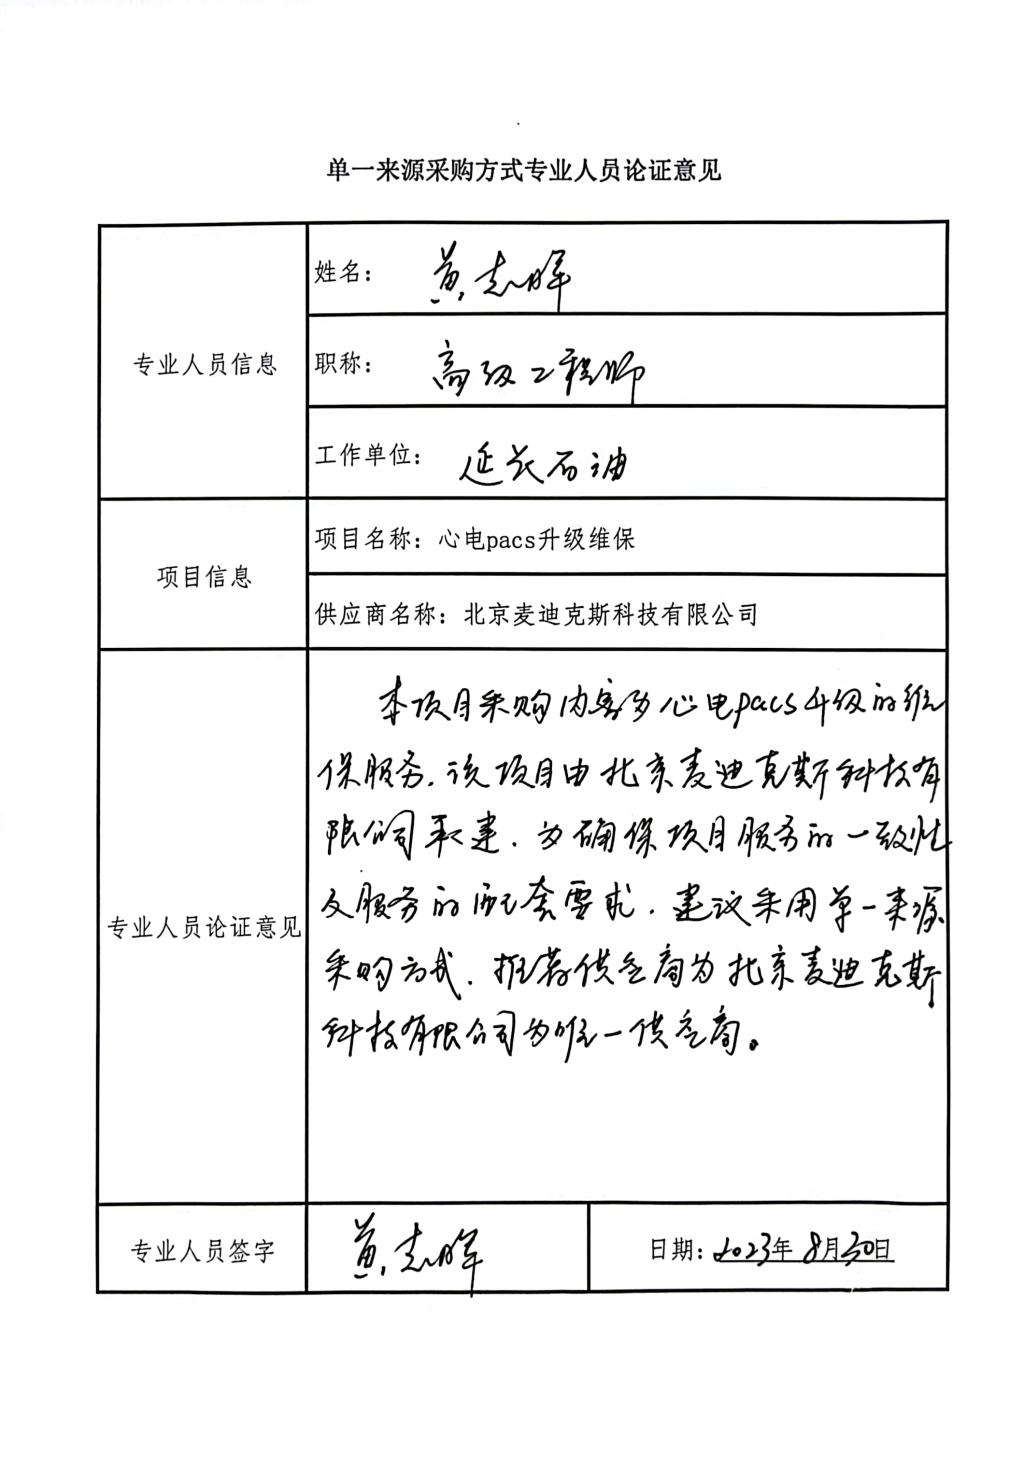 单一来源采购方式专业人员论证意见
专业人员信息
姓名：黄志晖
职称：高级工程师
工作单位：延长石油
项目信息
项目名称：心电pacs升级维保
供应商名称：北京麦迪克斯科技有限公司
专业人员论证意见
本项目采购内容为心电pacs升级的维
保服务，该项目由北京麦迪克斯科技有
限公司承建，为确保项目服务的一致性
及服务的配套要求，建议采用单一来源
采购方式，推荐供应商为北京麦迪克斯
科技有限公司为唯一供应商。
专业人员签字
黄志晖
日期：2023年8月30日